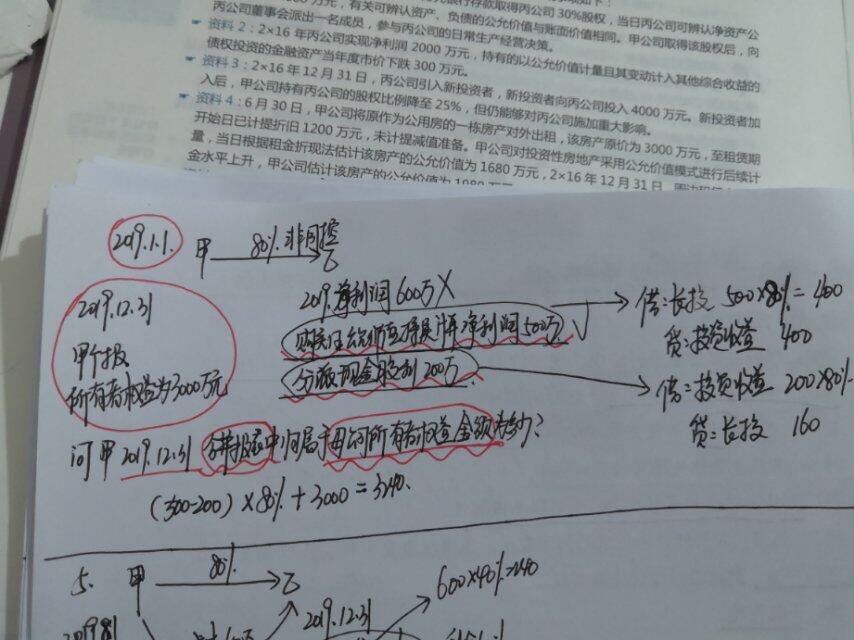 万元，有关可辨认资产、负债的公允价值与账面价值相同。甲公司取得该股权后，向
丙公司董事会派出一名成员，参与丙公司的日常生产经营决策。
资料2：2×16年丙公司实现净利润2000万元，持有的以公允价值计量且其变动计入其他综合收益的
债权投资的金融资产当年度市价下跌300万元。
资料3：2×16年12月31日，丙公司引入新投资者，新投资者向丙公司投入4000万元。新投资者加
入后，甲公司持有丙公司的股权比例降至25%，但仍能够对丙公司施加重大影响。
资料4：6月30日，甲公司将原作为公用房的一栋房产对外出租，该房产原价为3000万元，至租赁期
开始日已计提折旧1200万元，未计提减值准备。甲公司对投资性房地产采用公允价值模式进行后续计
量，当日根据租金折现法估计该房产的公允价值为1680万元，2×16年12月31日
金水平上升，甲公司估计该房产的公允价值为1980万元
2019.1.1. 甲 80% 非同控 乙
2019.12.31
甲个报
所有者权益为3000万元
2019净利润600万 ×
购买日公允价值持续计算净利润500万 √
分派现金股利200万
借：长投 500×80%=400
贷：投资收益 400
借：投资收益 200×80%
贷：长投 160
问甲2019.12.31合并报表中归属于母公司所有者权益金额为多少？
(500-200)×80%+3000=3240.
5. 甲 80% 乙
2019.12.31
600×40%=240